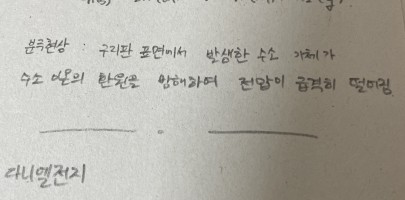 분극현상 : 구리판 표면에서 발생한 수소 기체가
수소 이온의 환원을 방해하여 전압이 급격히 떨어짐
다니엘전지